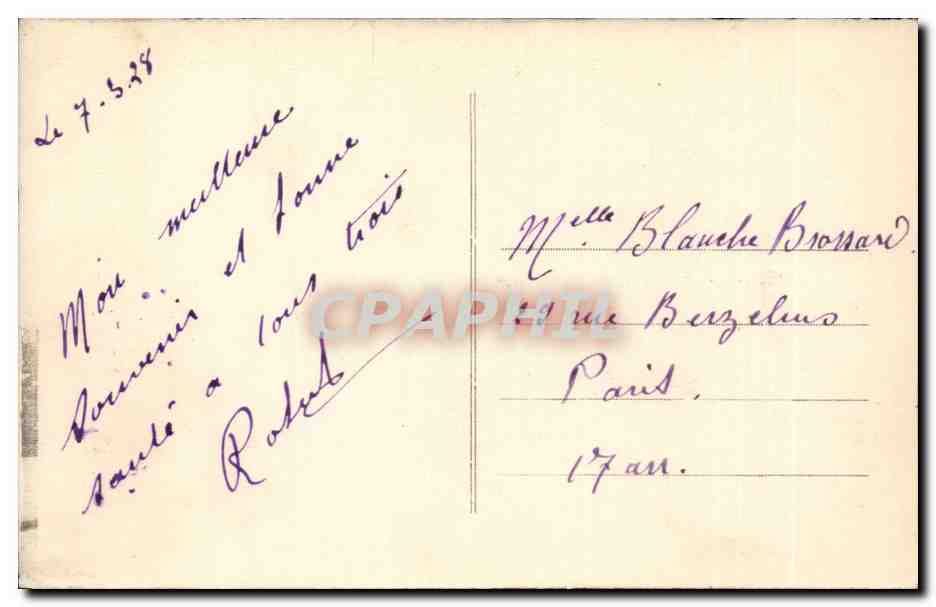 Le 7-3.28
Mon meilleur
souvenir et bonne
santé a tous trois
Robert
CPAPHIL
Melle Blanche Brossard
29 rue Berzelius
Paris.
17 arr.